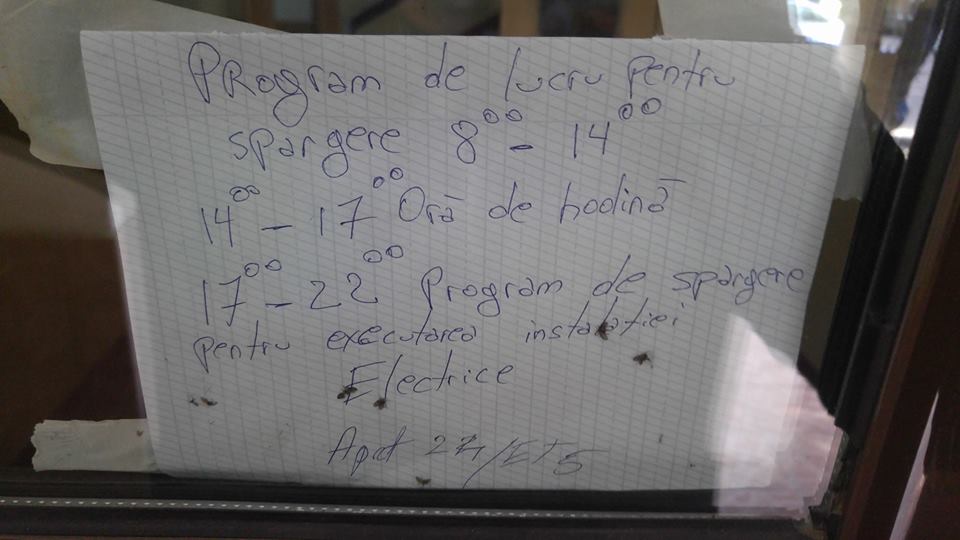 Program de lucru pentru
spargere 8⁰⁰ - 14⁰⁰
14⁰⁰ - 17⁰⁰ Oră de hodină
17⁰⁰ - 22⁰⁰ Program de spargere
pentru executarea instalatiei
Electrice
Apat /ET 5